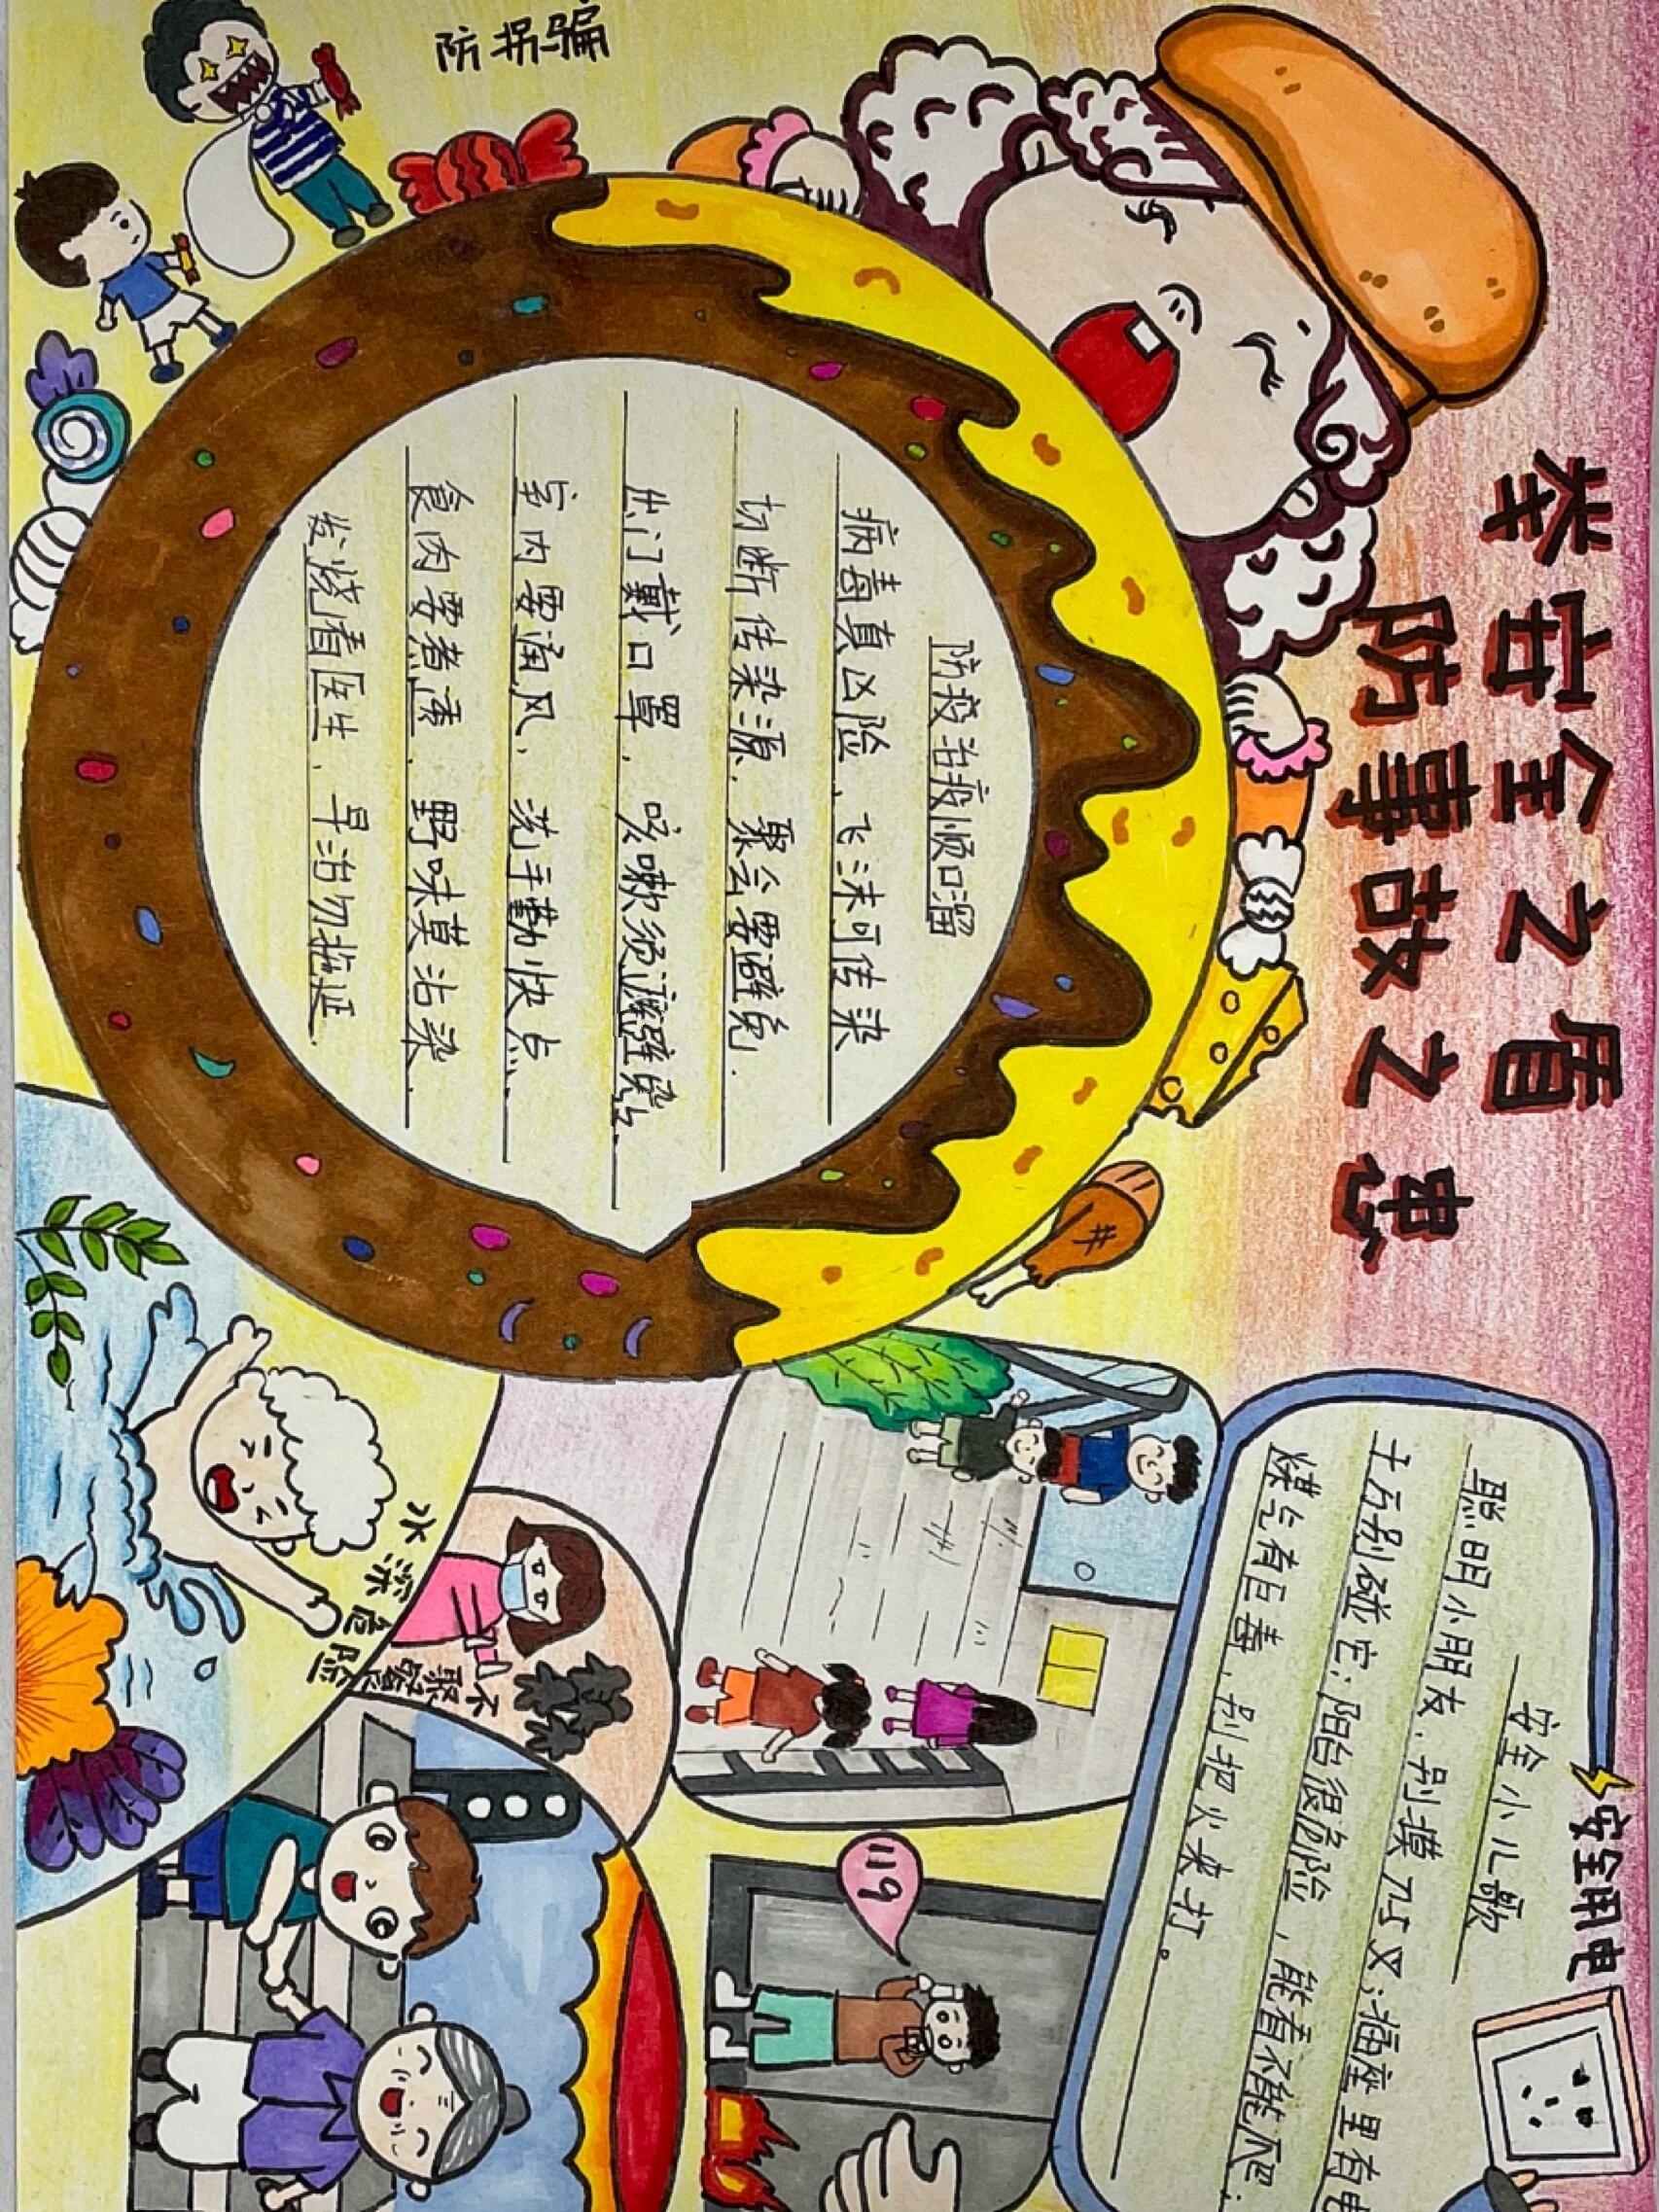 举安全之盾
防事故之患
防拐骗
防疫治疫顺口溜
病毒真凶险，飞沫可传染
切断传染源，聚会要避免．
出门戴口罩，咳嗽须遮
室内要通风，洗手勤快点．
食肉要煮透，野味莫沾染．
发烧看医生，早治勿拖延．
安全用电
安全小儿歌
聪明小朋友，别摸刀与叉；插座里有电
千万别碰它；阳台很危险，能看不能爬；
煤气有巨毒，别把火来打。
水深危险
不聚餐
119